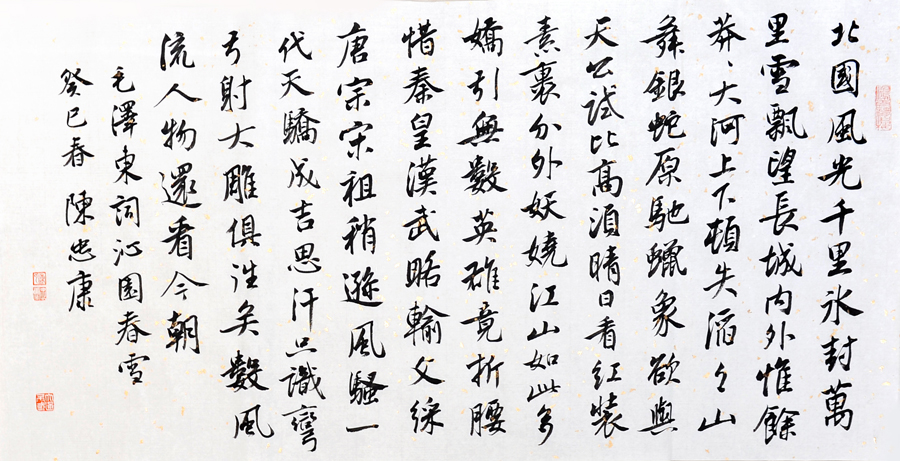 北國風光千里冰封萬
里雪飄望長城內外惟餘
莽〻大河上下頓失滔〻山
舞銀蛇原馳蠟象欲與
天公試比高須晴日看紅裝
素裹分外妖嬈江山如此多
嬌引無數英雄竟折腰
惜秦皇漢武略輸文綵
唐宗宋祖稍遜風騷一
代天驕成吉思汗只識彎
弓射大雕俱往矣數風
流人物還看今朝
毛澤東詞沁園春雪
癸巳春 陳忠康